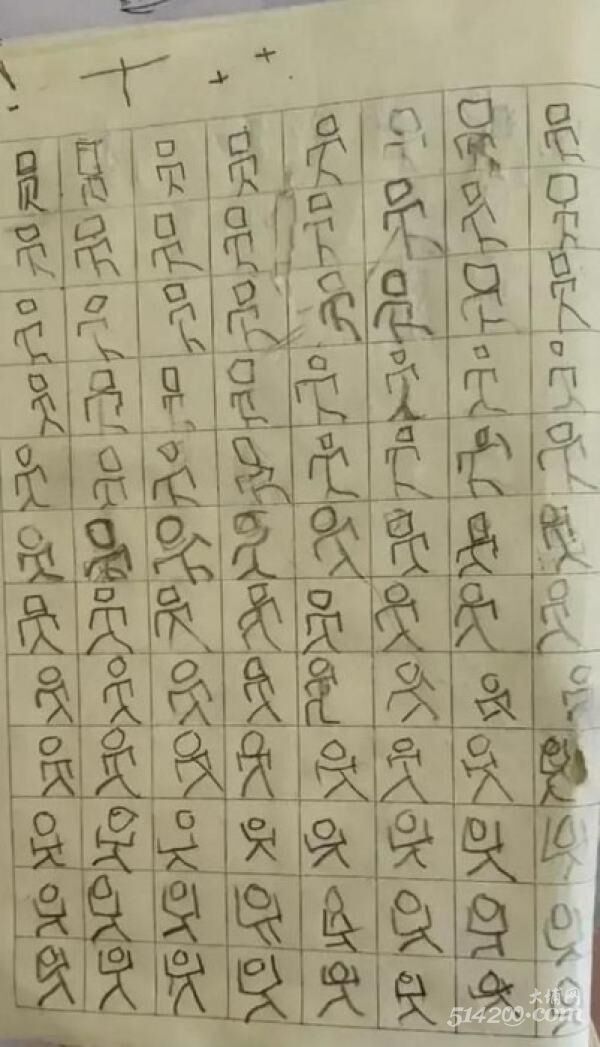 足足足足足足足足足足足足
足足足足足足足足足足足足
足足足足足足足足足足足足
足足足足足足足足足足足足
足足足足足足足足足足足足
足足足足足足足足足足足足
足足足足足足足足足足足足
足足足足足足足足足足足足
大埔网
514200.com